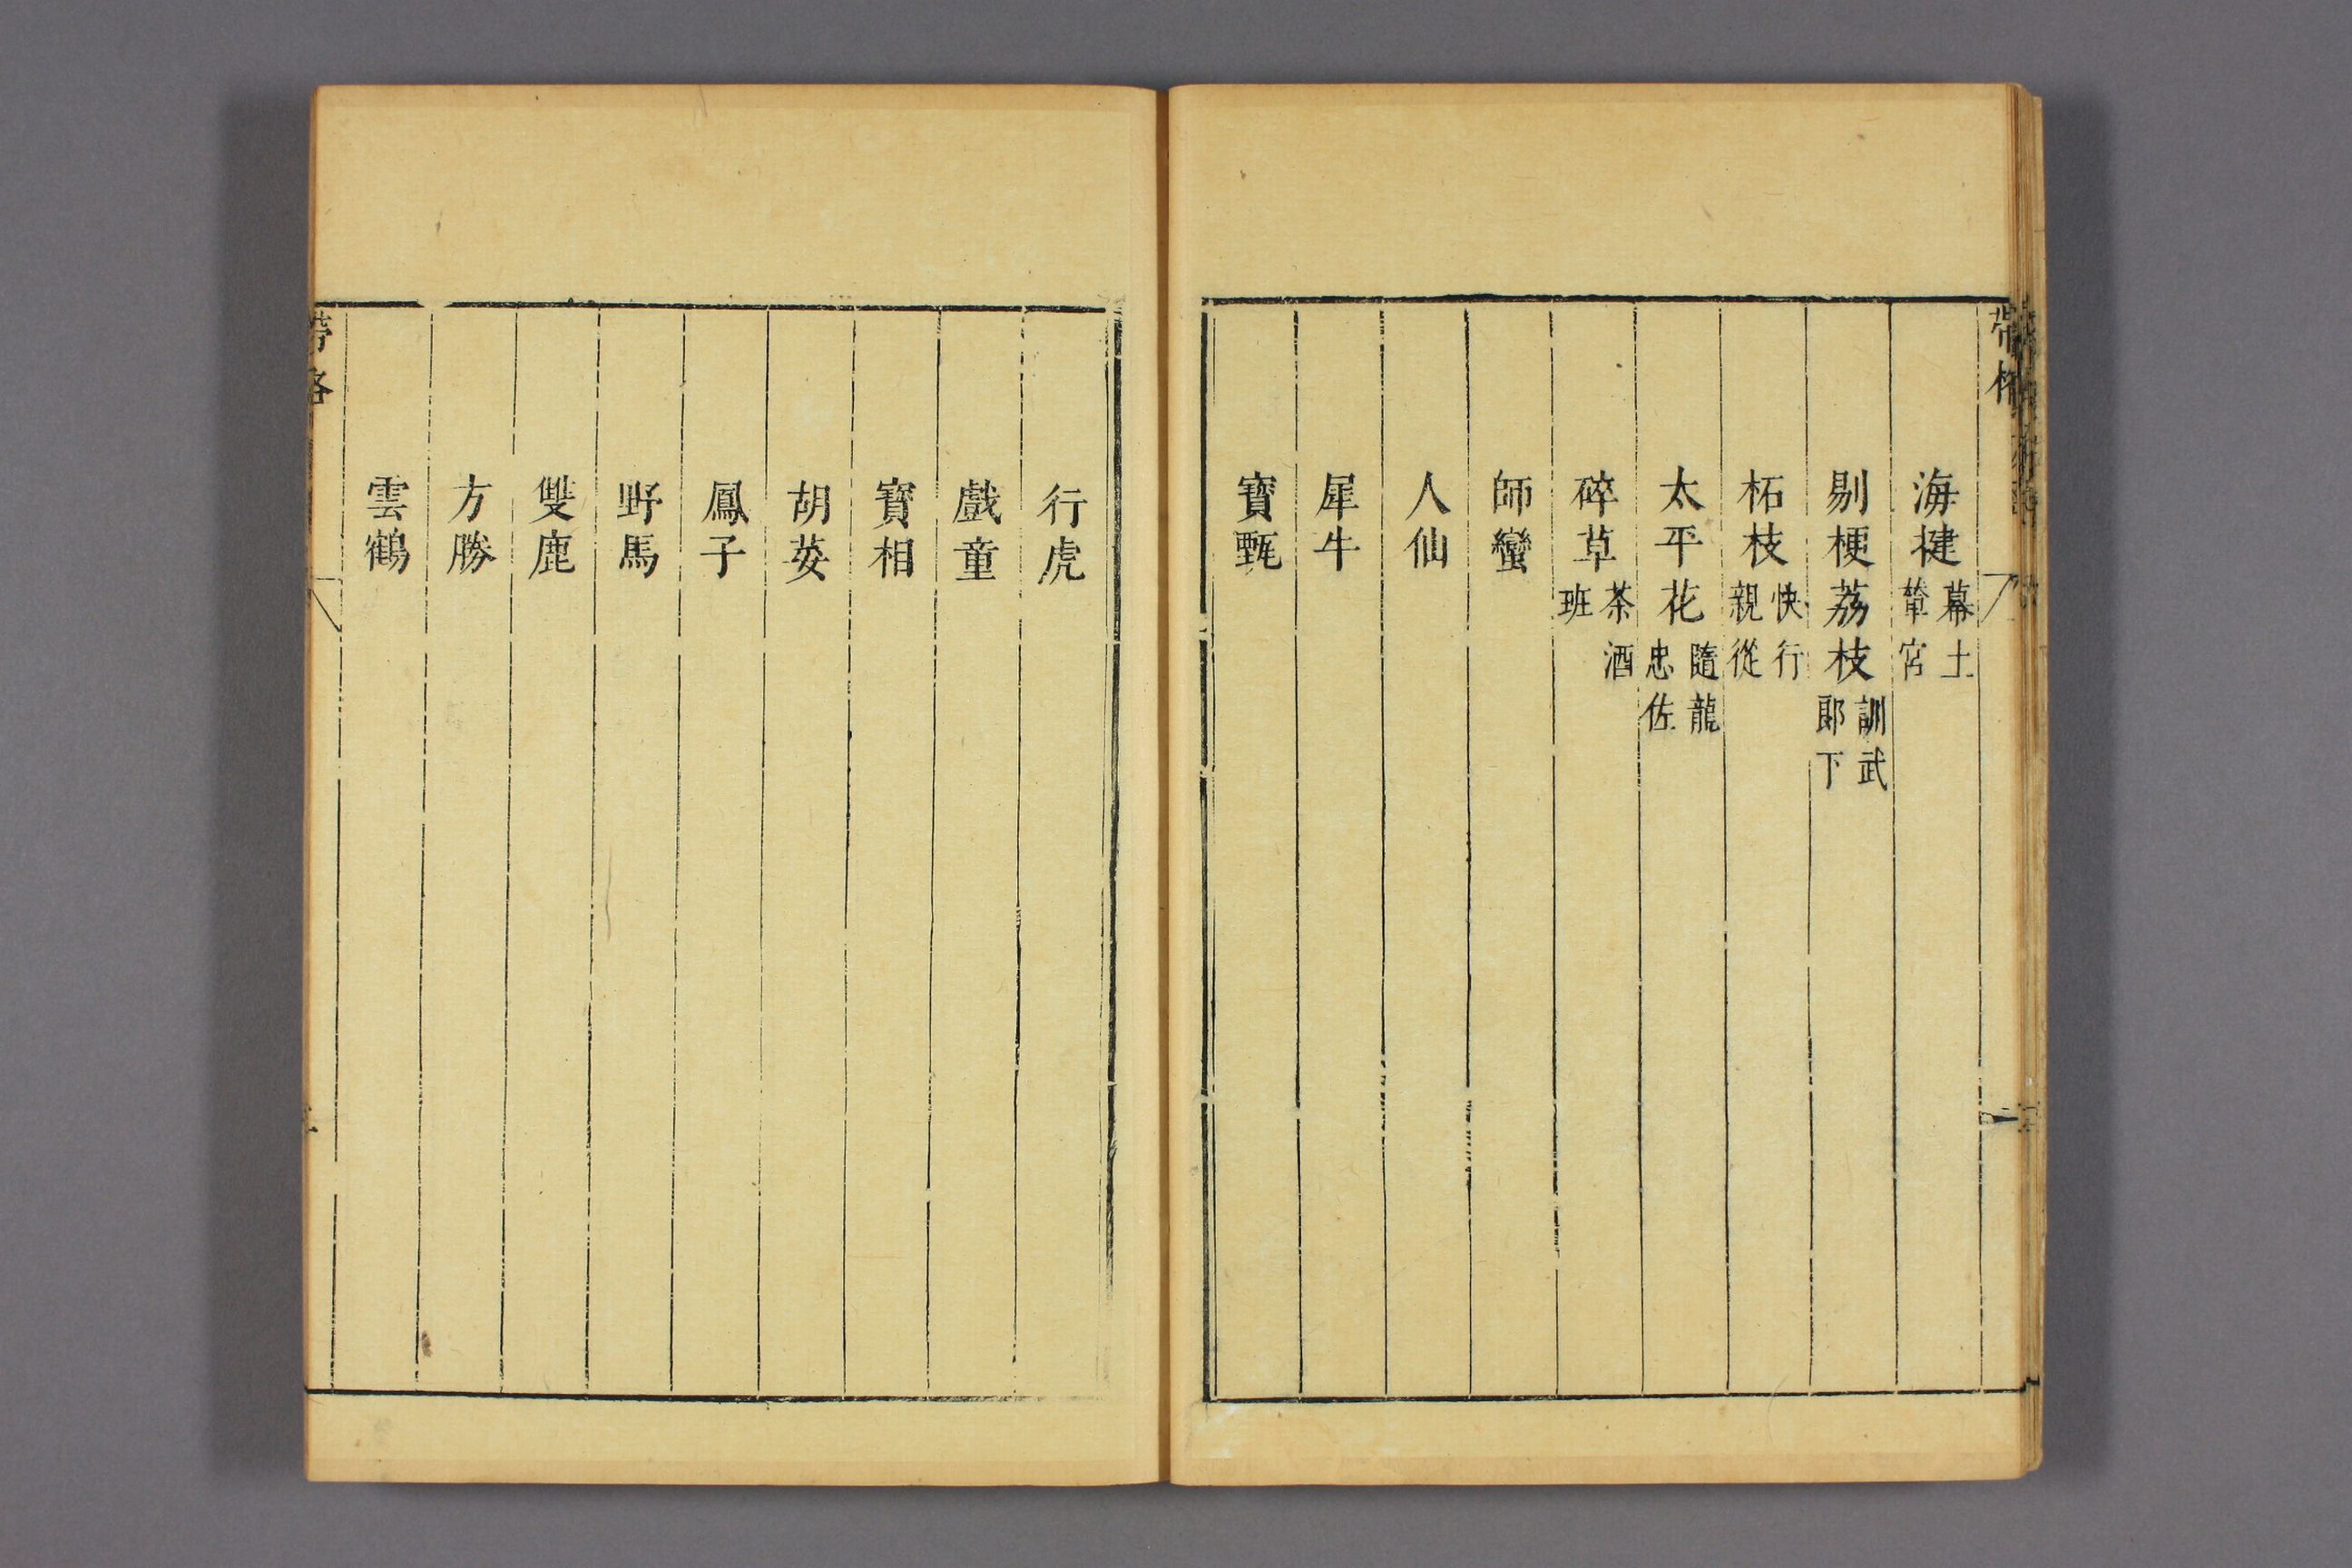 海捷幕士輦官
剔梗荔枝訓武郎下
柘枝快行親從
太平花隨龍忠佐
碎草茶酒班
師蠻
人仙
犀牛
寶甁
行虎
戲童
寶相
胡荽
鳳子
野馬
雙鹿
方勝
雲鶴
帶格